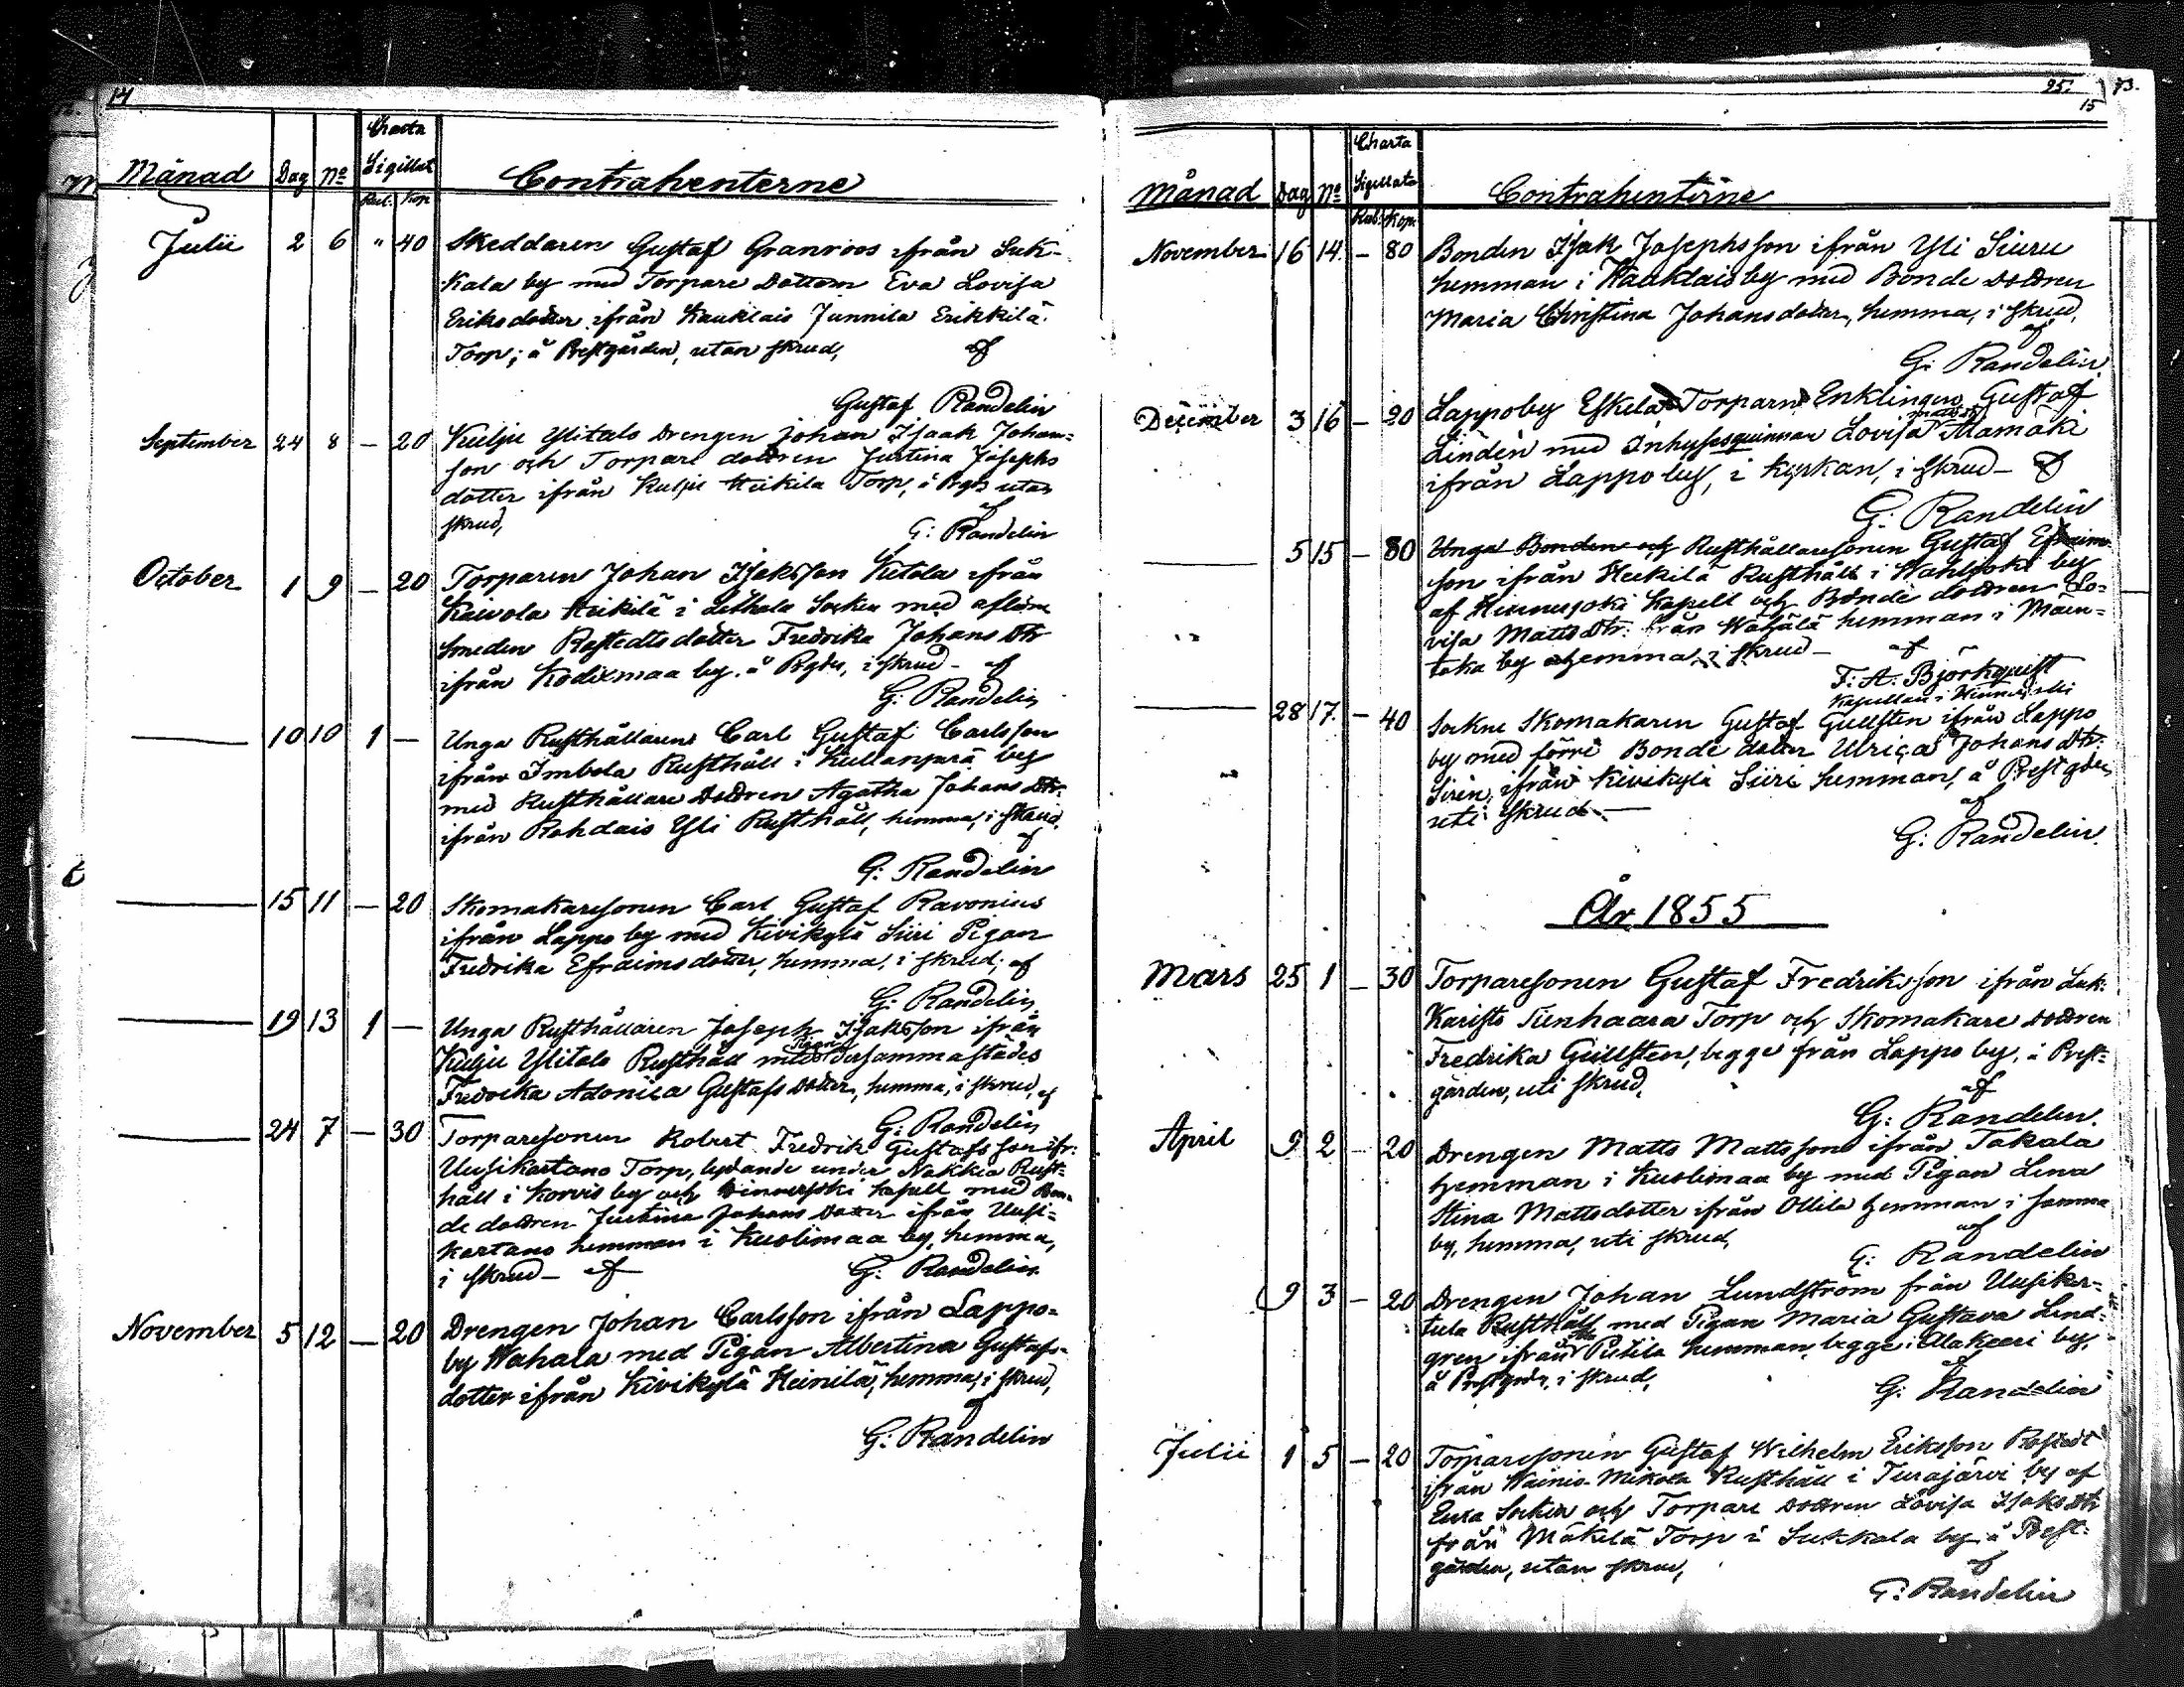 14
Månad Dag No Charta Sigillat Contrahenterne
Rub. Kop
Julii 2 6 " 40 Skeddaren Gustaf Granroos ifrån Suk-
kala by med Torpare Dottern Eva Lovisa
Eriksdotter ifrån Kauklais Junnila Erikkilä
Torp; å Prestgården, utan skrud, af
Gustaf Randelin
September 24 8 – 20 Kulju Ylitalo Drengen Johan Isaak Johan-
son och Torpare dottren Justina Josephs
dotter ifrån Kulju Heikila Torp, å Pgdn utan
skrud, af
G: Randelin
October 1 9 – 20 Torparen Johan Isaksson Kutola ifrån
Kaivola Heikilä i Lethala Socken med aflidne
Smeden Rostedts dotter Fredrika Johans Dtr
ifrån Kodixmaa by. å Pgdn, i skrud – af
G: Randelin
10 10 1 – Unga Rusthållaren Carl Gustaf Carlsson
ifrån Imbola Rusthåll i Kullanperä by
med Rusthållare Dottren Agatha Johans Dtr.
ifrån Rohdais Yli Rusthåll, hemma, i skrud.
af
G: Randelin
15 11 – 20 Skomakaresonen Carl Gustaf Ravonius
ifrån Lappo by med Kivikylä Siiri Pigan
Fredrika Efraimsdotter, hemma, i skrud; af
G: Randelin
19 13 1 – Unga Rusthållaren Joseph Isaksson ifrån
Kulju Ylitalo Rusthåll med Pigan dersammastädes
Fredrika Adonica Gustafs Dotter, hemma, i skrud, af
G: Randelin
24 7 – 30 Torparesonen Robert Fredrik Gustafsson ifr:
Uusikartano Torp, lydande under Nakkia Rust-
håll i Korvis by och Hinnerjoki kapell med Bon-
de dottren Justina Johans Dotter ifrån Uusi-
kartano hemman i Kuolimaa by, hemma,
i skrud – af G: Randelin
November 5 12 – 20 Drengen Johan Carlsson ifrån Lappo-
by Wahala med Pigan Albertina Gustafs-
dotter ifrån Kivikylä Heinilä, hemma, i skrud,
af
G: Randelin
25. 73.
15
Månad Dag No Charta Sigillata Contrahenterne
Rub. Kop.
November 16 14. – 80 Bonden Isak Josephsson ifrån Yli Siuru
hemman i Kauklais by med Bonde dottren
Maria Christina Johansdotter, hemma, i skrud,
af
G: Randelin
December 3 16 – 20 Lappoby Eskela Torparn Enklingen Gustaf
Lindén med Inhysesquinnan Lovisa Matts Dr Alamäki
ifrån Lappo by, i kyrkan, i skrud – af
G: Randelin
5 15 – 80 Unga Bonden och Rusthållaresonen Gustaf Efraim-
son ifrån Heikilä Rusthåll i Wahljoki by
af Hinnerjoki Kapell och Bonde dottren Lo-
visa Matts Dtr. från Wähälä hemman i Män-
toka by hemma, i skrud – af
F: A: Björkquist
Kapellan i Hinnerjoki
28 17. – 40 Sockne Skomakaren Gustaf Gullsten ifrån Lappo
by med förre Bonde dotter Ulrica Johans Dtr:
Sirén, ifrån Kivikylä Siiri hemman, å Prestgden
uti skrud. –
af
G: Randelin.
År 1855
Mars 25 1 – 30 Torparesonen Gustaf Fredriksson ifrån Luk:
Karists Tunhaara Torp och Skomakare dottren
Fredrika Gullsten, begge från Lappo by, å Prest-
gården, uti skrud,
af
G: Randelin.
April 9 2 – 20 Drengen Matts Mattsson ifrån Takala
hemman i Kuolimaa by med Pigan Lena
Stina Mattsdotter ifrån Ollila hemman i samma
by, hemma, uti skrud,
af
G: Randelin
9 3 – 20 Drengen Johan Lundström från Uusiker-
tula Rusthåll med Pigan Maria Gustava Lind-
gren ifrån Pietila hemman, begge i Alakeeri by,
å Prestgdn, i skrud,
G: Randelin
Julii 1 5 – 20 Torparesonen Gustaf Wilhelm Eriksson Rostedt
ifrån Wäinio-Mikola Rusthåll i Turajärvi by af
Eura Socken och Torpare dottren Lovisa Isaks Dtr
från Mäkilä Torp i Sukkala by å Prest-
gården, utan skrud,
af
G: Randelin